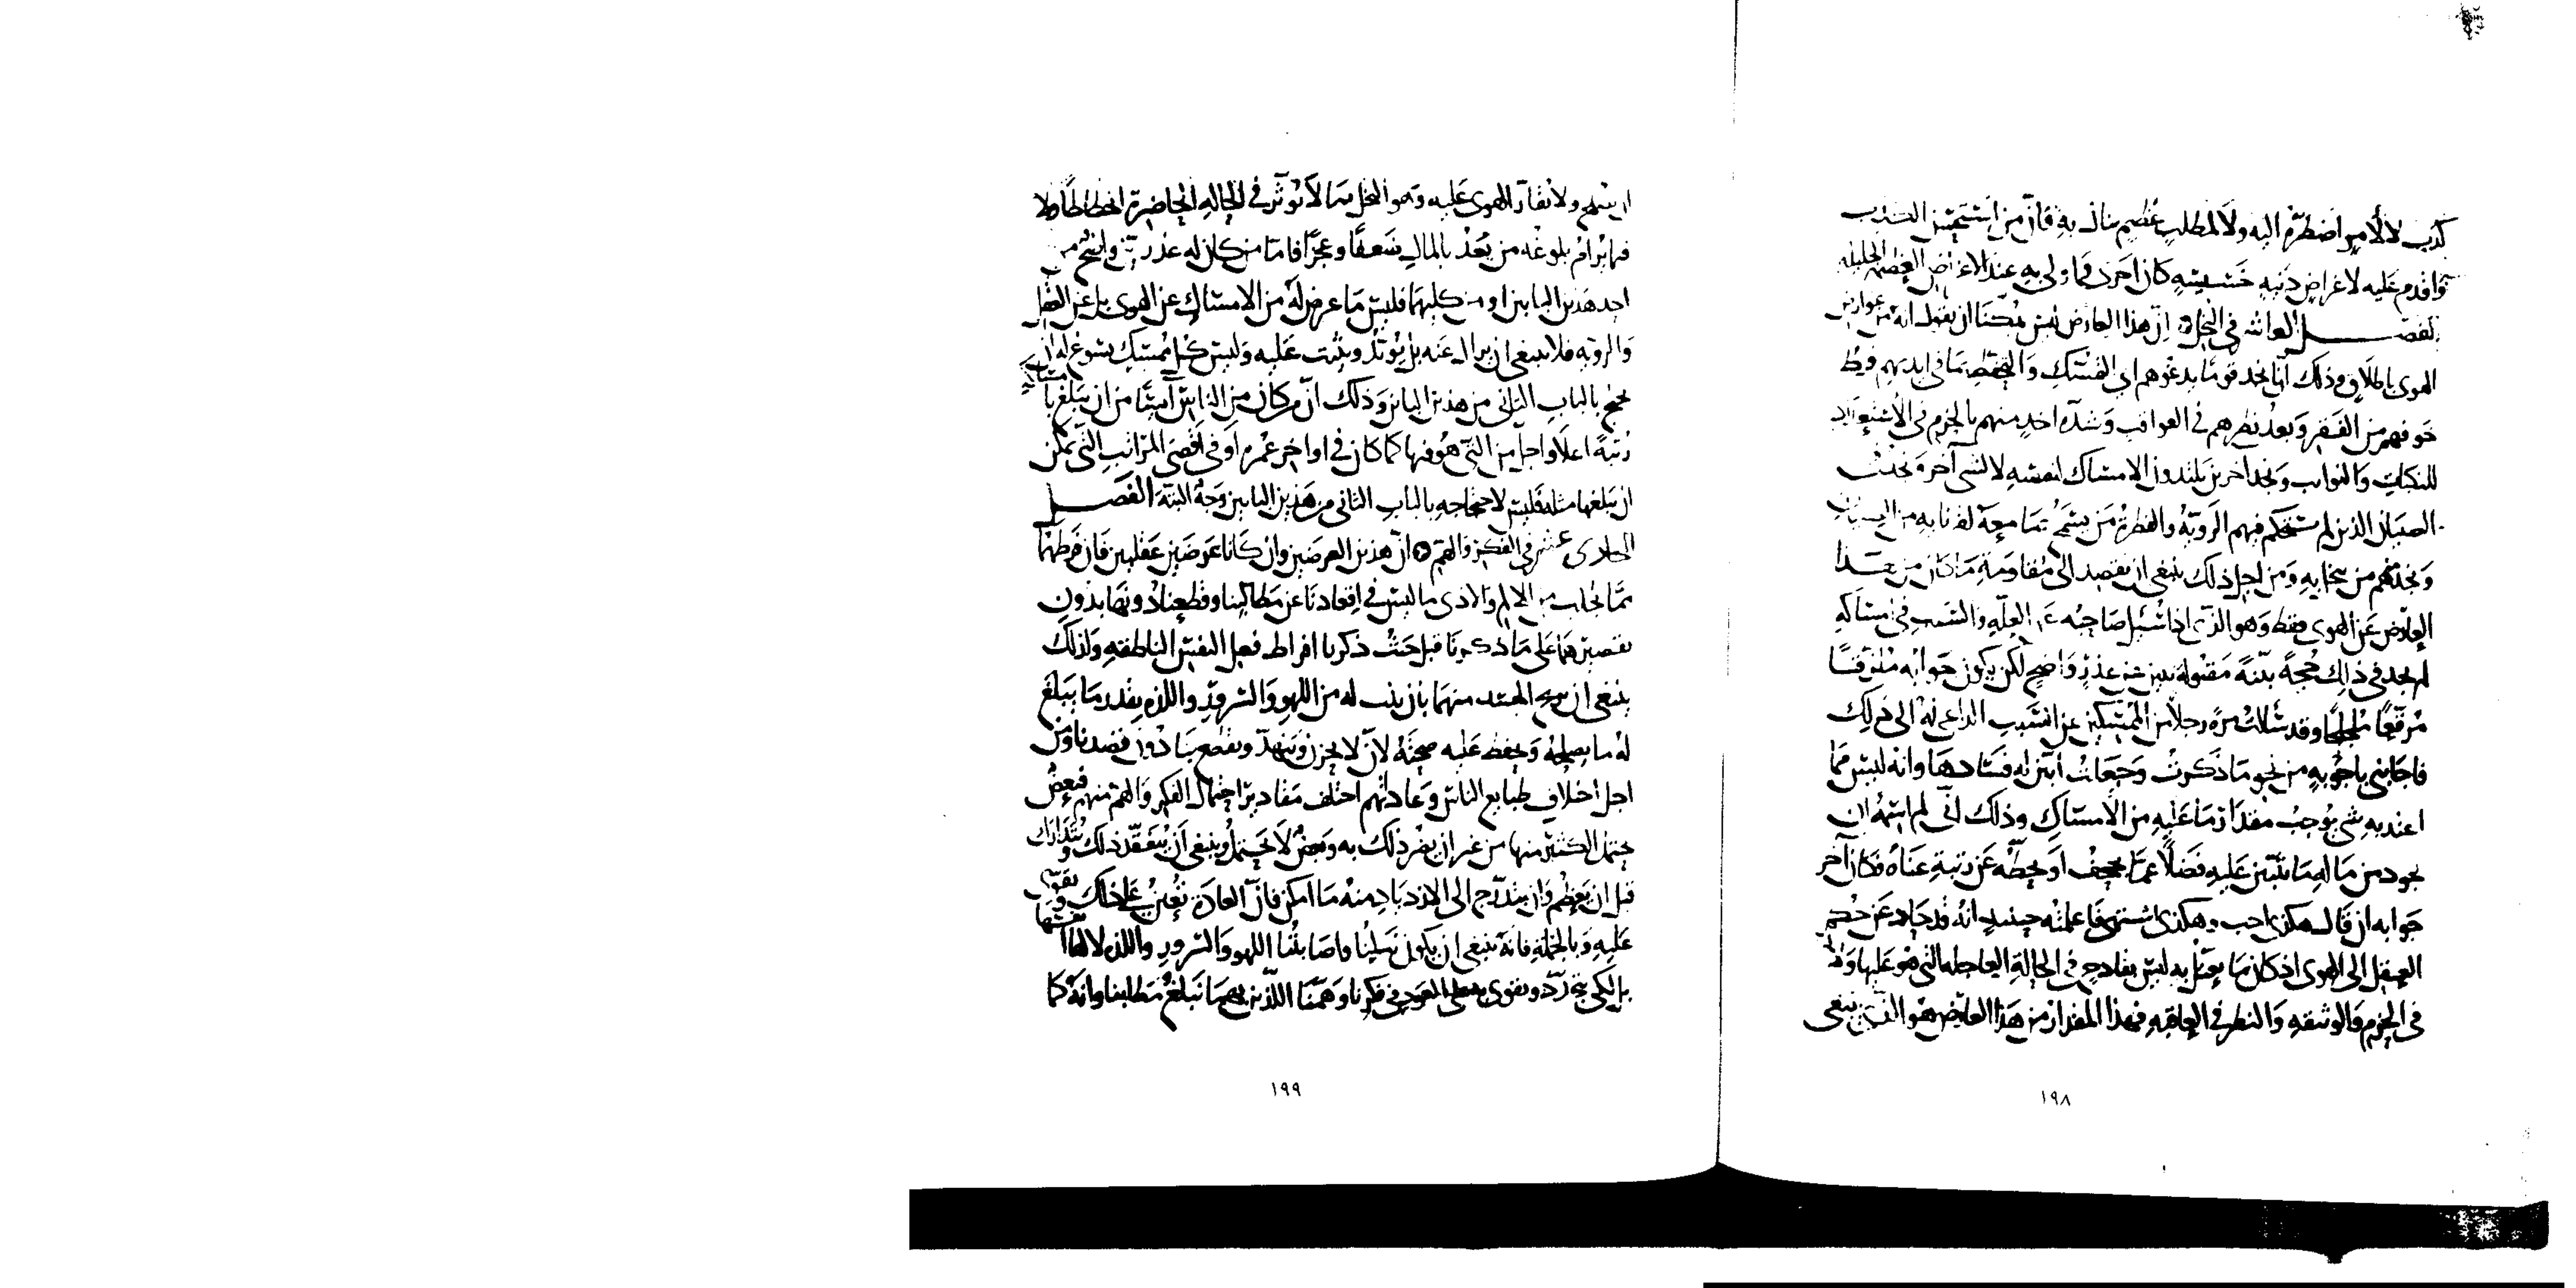 كذب لا لأمر اضطره اليه ولا لمطلب عظيم ينال به فان من استحسن الكذب
واقدم عليه لاغراض دنيه خسيسه كان احرى واولى به عند الاغراض العظيمه الجليله
الفصل العاشر في البخل ان هذا العارض ليس يمكننا ان نقول انه من عوارض
الهوى باطلاق وذلك انا نجد قوما يدعوهم الى التمسك والتحفظ بما في ايديهم فرط
خوفهم من الفقر وبعد نظرهم في العواقب وشدة اخذ منهم بالحزم في الاستعداد
للنكبات والنوايب ونجد اخرين يلتذون الامساك لنفسه لا لشي آخر ونجد من
الصبيان الذين لم تستحكم فيهم الروية والفطرة من يسمح بما معه لقرنايه من الصبيان
ونجد منهم من يبخل به ومن اجل ذلك ينبغي ان نقصد الى مقاومة ما كان من هذا
العارض عن الهوى فقط وهو الذي اذا سئل صاحبه عن العله والسبب في امساكه
لم يجد في ذلك حجة بينة مقبولة تبين عن عذر واضح لكن يكون جوابه ملزقا
مرقعا ملجلجا وقد سألت مرة رجلا من الممسكين عن السبب الداعي له الى ذلك
فاجابني باجوبه من نحو ما ذكرت وجعلت ابين له فسادها وانه ليس مما
اعتد به شي يوجب مقدار ما عليه من الامساك وذلك اني لم اسمه ان
يجود من ماله ما يتبين عليه فضلا عما يجحف او يحطه عن رتبة غناه فكان آخر
جوابه ان قال هكذى احب وهكذى اشتهي فاعلمته حينيذ انه قد حاد عن حكم
العقل الى الهوى اذ كان ما يعتل به ليس بقادح في الحالة العاجله التي هو عليها ولا
في الحزم والوثيقه والنظر في العاقبه فهذا المقدار من هذا العارض هو الذي ينبغي
١٩٨
ان يصلح ولا نقار الهوى عليه وهو البخل بما لا يوثر في الحاله الحاضرة انحطاطا ولا
فيما يرام بلوغه من بعد بالمال ضعفا وعجزا فاما من كان له عذر بين واضح من
احد هذين البابين او من كليهما فليس ما عرض له من الامساك عن الهوى بل عن العقل
والرويه فلا ينبغي ان يزال عنه بل يؤكد ويثبت عليه وليس كل ممسك يسوغ له ان
يحتج بالباب الثاني من هذين البابين وذلك ان من كان من الناس آيسا من ان يبلغ بامساكه
رتبة اعلا واجل من التي هو فيها كما كان في اواخر عمره او في اقصى المراتب التي يمكن
ان يبلغها مثله فليس لاحتجاجه بالباب الثاني من هذين البابين وجه البتة الفصل
الحادى عشر في الفكر والهم ان هذين العرضين وان كانا عرضين عقليين فان فرطهما
مما يجلب من الالم والاذى ما ليس في اقعادنا عن مطالبنا وقطعنا دونها بدون
تقصيرهما على ما ذكرنا قبل حيث ذكرنا افراط فعل النفس الناطقه ولذلك
ينبغي ان يريح الجسد منهما بان ينيب له من اللهو والسرور واللذه بقدر ما يبلغ
له ما يصلحه ويحفظ عليه صحته لان لا يحزن وينهد وينقطع بنا دون قصدنا ومن
اجل اختلاف طبايع الناس وعاداتهم اختلف مقادير احتمال الفكر والهم منهم فبعض
يحتمل الكثير منها من غير ان يضر ذلك به وبعض لا يحتمل وينبغي ان يتفقد ذلك ويتدارك
قبل ان يعظم وان يتدرج الى الازدياد منه ما امكن فان العادة تعين على ذلك وتقوى
عليه وبالجملة فانه ينبغي ان يكون نيلنا واصابتنا اللهو والسرور واللذه لا لها نفسها
بل لكى نتجدد ونقوى على العود في فكرنا وهمنا اللذين بهما نبلغ مطالبنا وانه كما
١٩٩